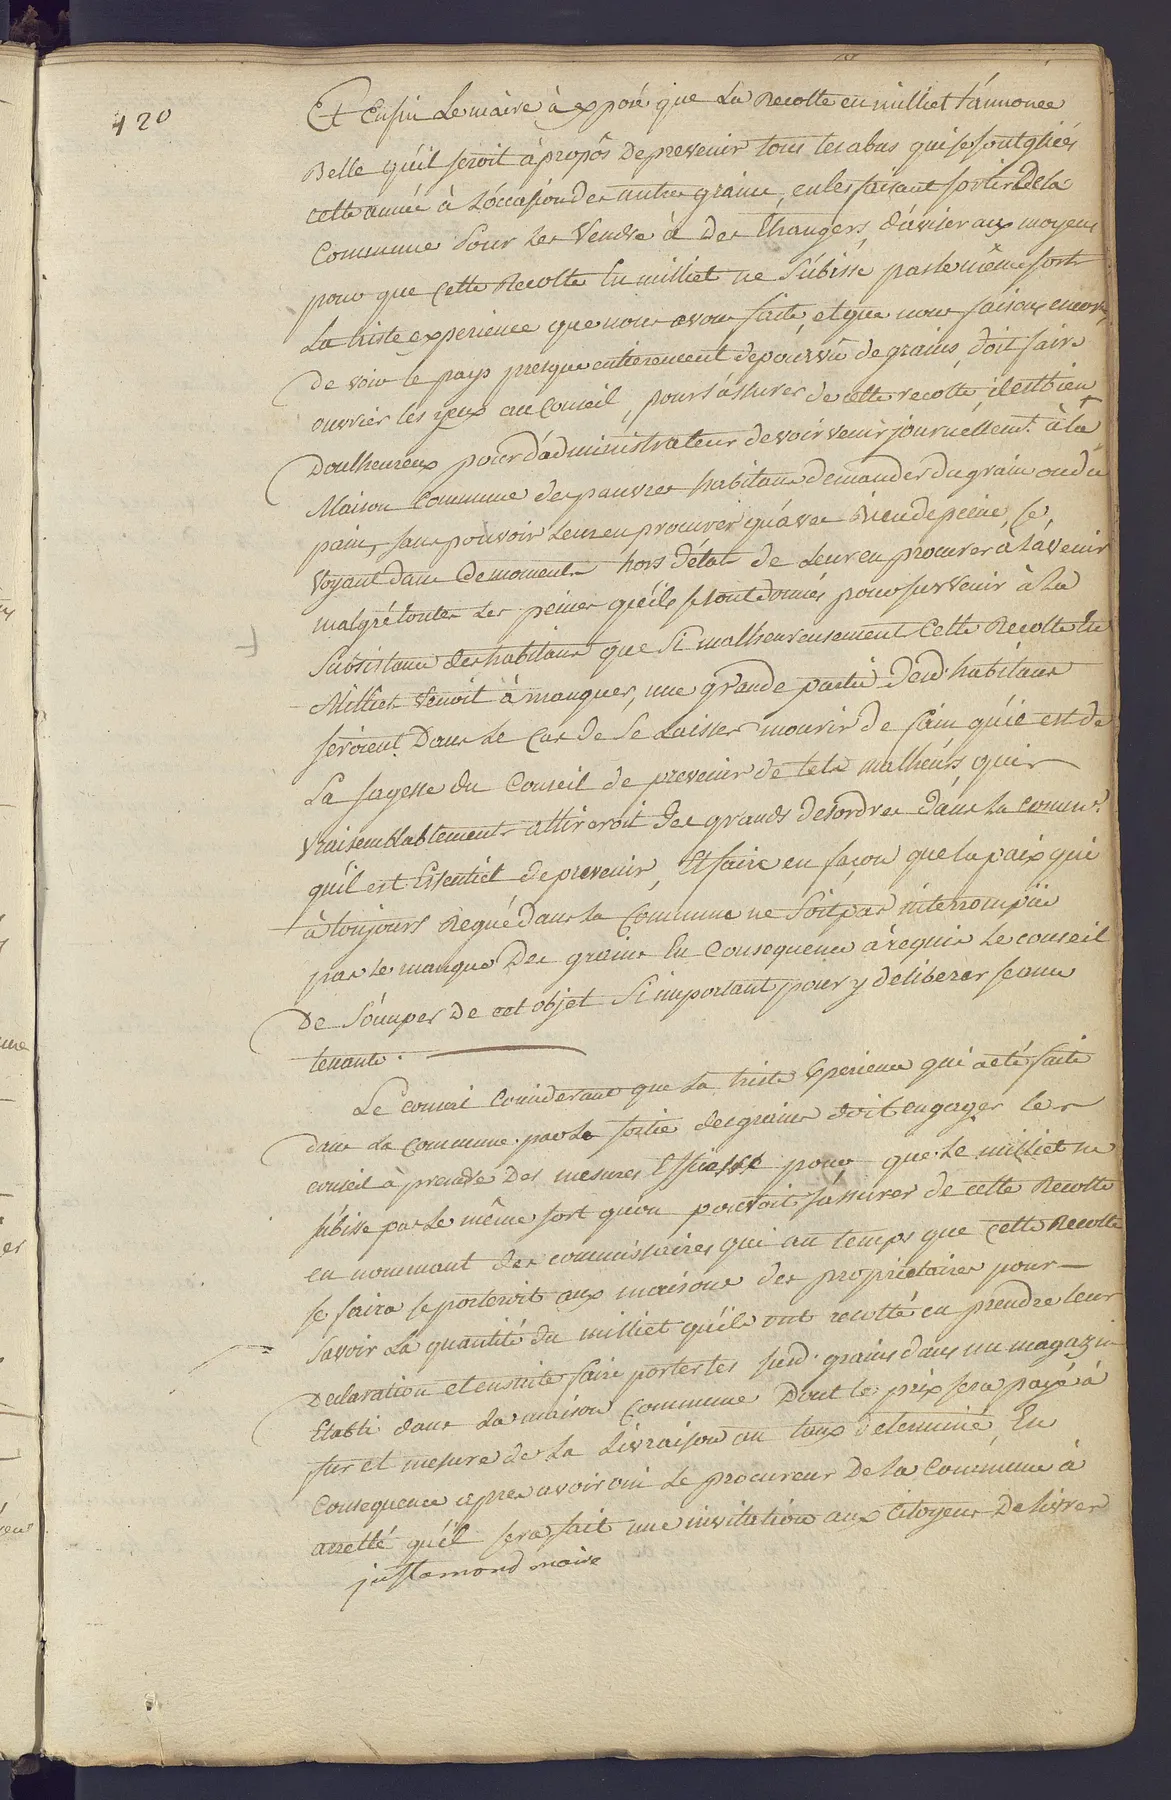 420
Et Enfin Le maire à exposé que La Recolte en milliet s'annonce
Belle qu'il seroit à propos De prevenir tous les abus qui se sont glicés
cette année à L'occasion des autres grains, en les faisant sortir De la
Commune Pour Les Vendre à Des Etrangers, d'aviser aux moyens
pour que cette Recolte En milliet ne Subisse pas le même sort
La triste experience que nous avons faite, et que nous faisons encore,
De voir le pays presque entierement depourvû de grains, doit faire
ouvrier les yeux au Conseil, pour s'assurer de cette recolte, il est bien
Doulheureux pour d'administrateurs de voir venir journéllemt. à la
Maison Commune des pauvres habitans demander du grain ou du
pain, sans pouvoir Leur en procurer qu'avec bien de peine, se
Voyant dans ce moment hors d'état de Leur en procurer à L'avenir
malgré toutes Les peines qu'ils se sont donnés pour survenir à La
Subsistance des habitans que Si malheureusement Cette Recolte En
Milliet Venoit à manquer, une grande partie Desd. habitans
seroient Dans Le Cas de Se Laisser mourir de faim qu'il est de
La sagesse du Conseil de prevenir de tels malheurs, qui
Vraisemblablement attireroit des grands desordres dans La Commune.
qu'il est Essentiel de prevenir, Et faire en façon que la paix qui
à toujours Regné dans la Commune ne Soit pas interrompüe
par le manque Des grains En Consequence à requis Le conseil
De S'ocuper De cet objet Si important pour y deliberer seance
tenante.
Le conseil Considerant que La triste Experience qui a eté faite
dans La Commune par La sortie des grains doit engager le
conseil à prendre Des mesures Efficasse pour que Le milliet ne
subisse pas Le même sort qu'on pourroit s'assurer de cette Recolte
en nommant des commissaires qui au temps que cette Recolte
se faira se porteroit aux maisons des proprietaires pour
savoir La quantité du milliet qu'ils ont recolté en prendre leur
Declaration et ensuite faire porter les susd. grains dans un magazin
Etabli dans La maison Commune Dont le prix sera payé à
fur et mesure de La Livraison au taux determiné, En
Consequence apres avoir oui Le procureur De la Commune à
arretté qu'il sera fait une invitation aux Citoyens De livrer
justamond maire